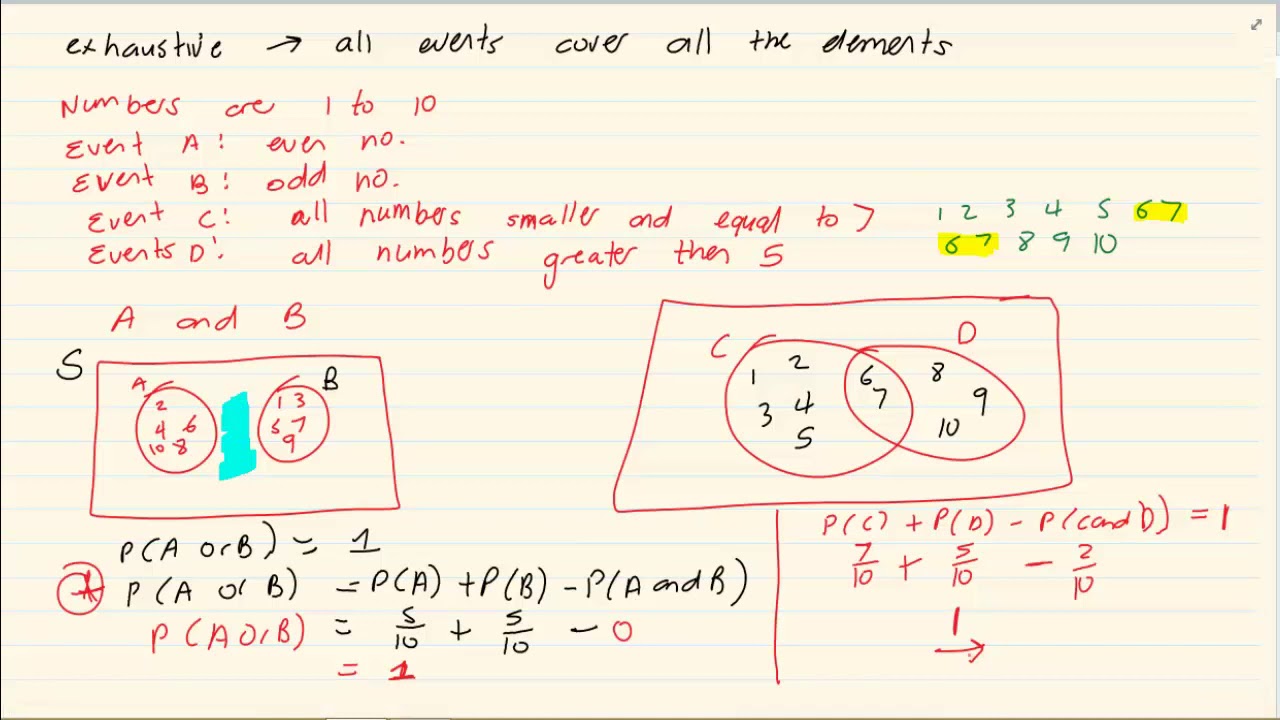 exhaustive → all events cover all the elements
Numbers are 1 to 10
Event A: even no.
Event B: odd no.
Event C: all numbers smaller and equal to 7
1 2 3 4 5 6 7
Events D: all numbers greater then 5
6 7 8 9 10
A and B
S
A
B
2
4 6
10 8
1 3
5 7
9
C
D
1 2
3 4
5
6
7
8
9
10
P(A or B) = 1
P(A or B) = P(A) + P(B) - P(A and B)
P(A or B) = 5/10 + 5/10 - 0
= 1
P(C) + P(D) - P(C and D) = 1
7/10 + 5/10 - 2/10
1
→